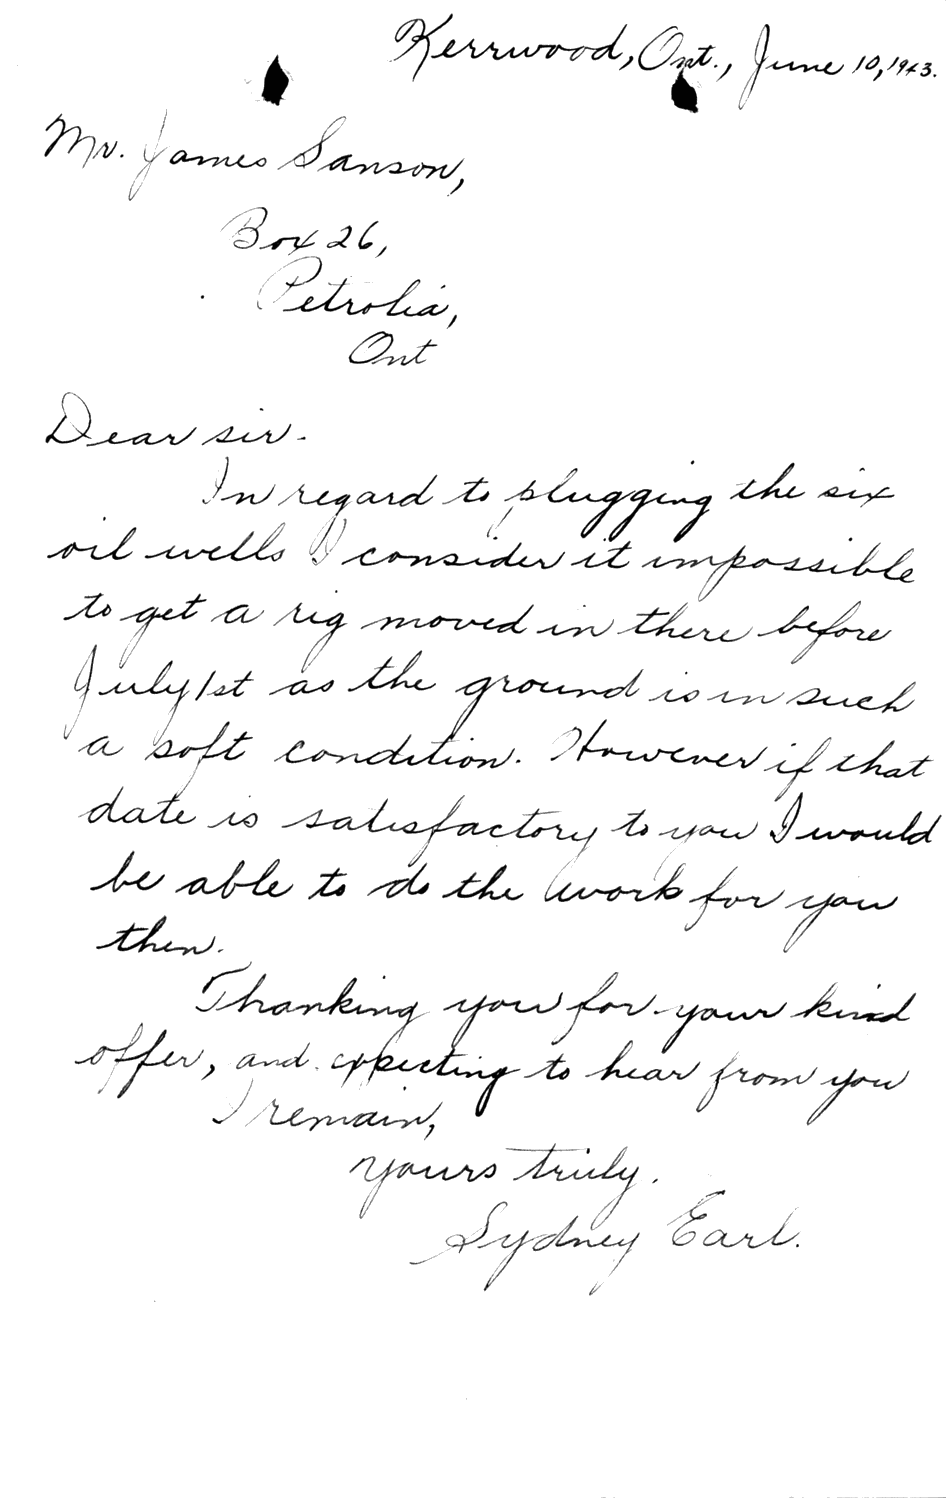 Kerrwood, Ont., June 10, 1943.
Mr. James Sanson,
Box 26,
Petrolia,
Ont
Dear sir.
In regard to plugging the six
oil wells I consider it impossible
to get a rig moved in there before
July 1st as the ground is in such
a soft condition. However if that
date is satisfactory to you I would
be able to do the work for you
then.
Thanking you for your kind
offer, and expecting to hear from you
I remain,
yours truly.
Sydney Earl.